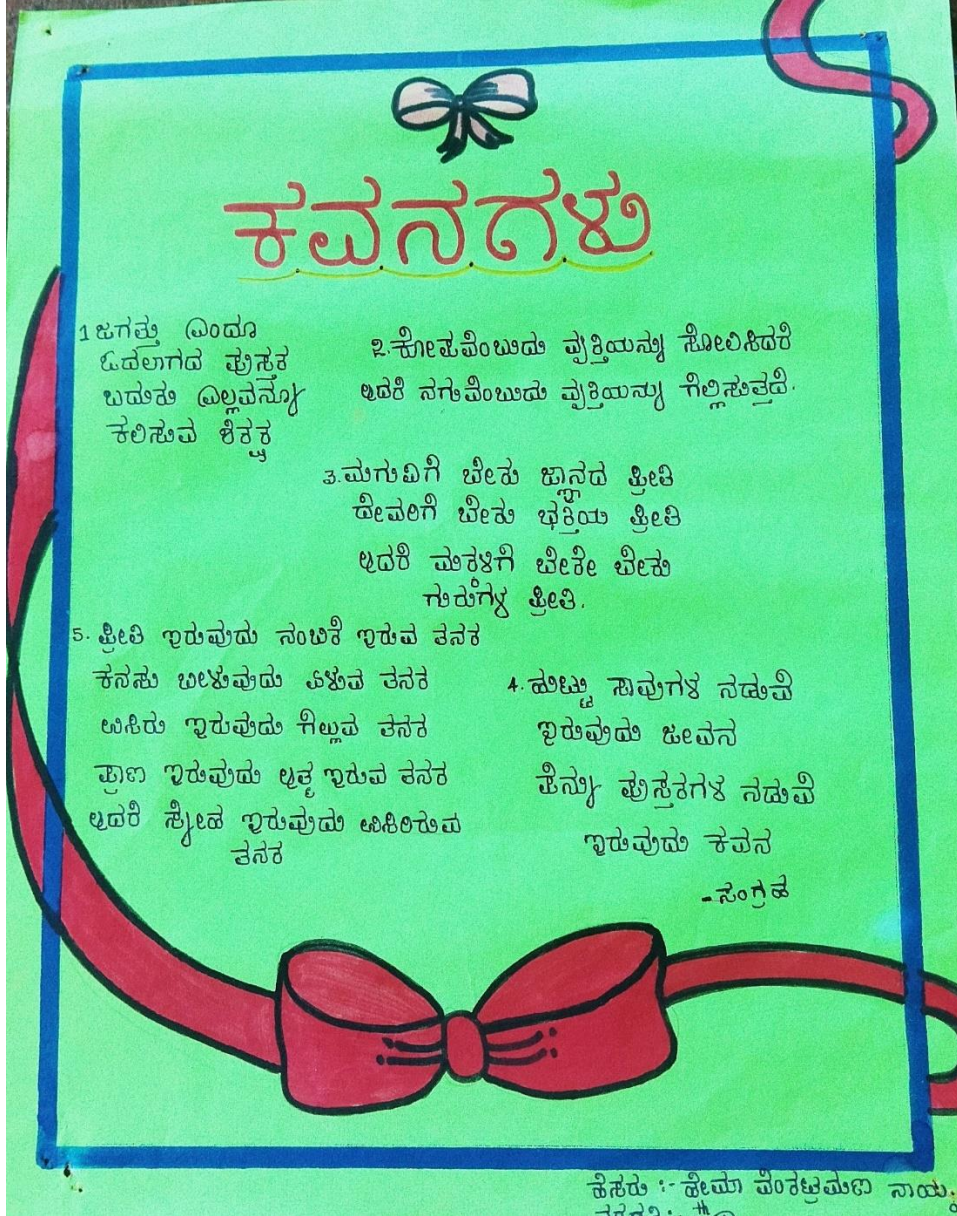 ಕವನಗಳು
1 ಜಗತ್ತು ಎಂದೂ
ಓದಲಾಗದ ಪುಸ್ತಕ
ಬದುಕು ಎಲ್ಲವನ್ನೂ
ಕಲಿಸುವ ಶಿಕ್ಷಕ
2. ಕೋಪವೆಂಬುದು ವ್ಯಕ್ತಿಯನ್ನು ಸೋಲಿಸಿದರೆ
ಆದರೆ ನಗುವೆಂಬುದು ವ್ಯಕ್ತಿಯನ್ನು ಗೆಲ್ಲಿಸುತ್ತದೆ.
3. ಮಗುವಿಗೆ ಬೇಕು ಜ್ಞಾನದ ಪ್ರೀತಿ
ದೇವರಿಗೆ ಬೇಕು ಭಕ್ತಿಯ ಪ್ರೀತಿ
ಆದರೆ ಮಕಳಿಗೆ ಬೇಕೇ ಬೇಕು
ಗುರುಗಳ ಪ್ರೀತಿ.
5. ಪ್ರೀತಿ ಇರುವುದು ನಂಬಿಕೆ ಇರುವ ತನಕ
ಕನಸು ಬೀಳುವುದು ಏಳುವ ತನಕ
ಉಸಿರು ಇರುವುದು ಗೆಲ್ಲುವ ತನಕ
ಪ್ರಾಣ ಇರುವುದು ಆತ್ಮ ಇರುವ ತನಕ
ಆದರೆ ಸ್ನೇಹ ಇರುವುದು ಉಸಿರಿರುವ
ತನಕ
4. ಹುಟ್ಟು ಸಾವುಗಳ ನಡುವೆ
ಇರುವುದು ಜೀವನ
ಪೆನ್ನು ಪುಸ್ತಕಗಳ ನಡುವೆ
ಇರುವುದು ಕವನ
- ಸಂಗ್ರಹ
ಹೆಸರು :- ಹೇಮಾ ವೆಂಕಟ್ರಮಣ ನಾಯ್ಕ